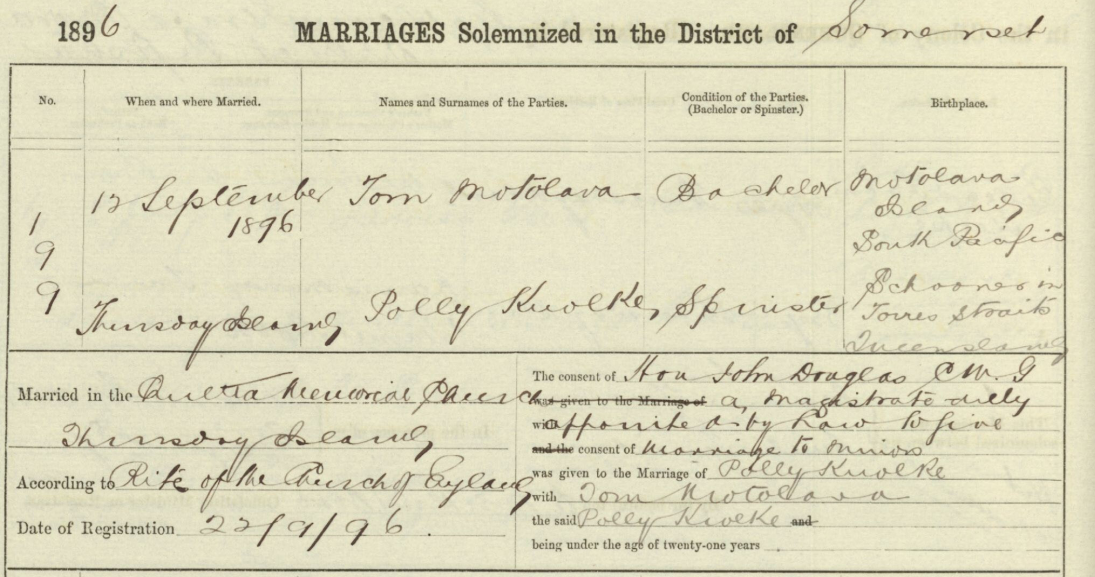 1896 MARRIAGES Solemnized in the District of Somerset
No.
When and where Married.
Names and Surnames of the Parties.
Condition of the Parties.
(Bachelor or Spinster.)
Birthplace.
1
9
9
12 September
1896
Thursday Island
Tom Motolava
Polly Kwolke
Bachelor
Spinster
Motolava
Island
South Pacific
Schooner in
Torres Straits
Queensland
Married in the Quetta Memorial Church
Thursday Island
According to Rite of the Church of England
Date of Registration 22/9/96.
The consent of Hon John Douglas C.M.G
was given to the Marriage of a, Magistrate duly
with appointed by Law to give
and the consent of Marriage to Minors
was given to the Marriage of Polly Kwolke
with Tom Motolava
the said Polly Kwolke and
being under the age of twenty-one years